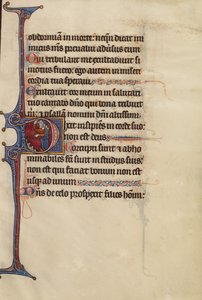 obdormiam in morte: nequando dicat ini
micus meus prevalui adversus eum
Qui tribulant me exultabunt si
motus fuero: ego autem in miseri
cordia tua speravi
Exultavit cor meum in saluta
tuo cantabo domino qui bona tribuit
m: et psallam nomini domini altissimi
Dixit insipiens in corde suo:
non est deus
Corrupti sunt et abho
minabiles facti sunt in studiis suis:
non est qui faciat bonum non est
usque ad unum
Dominus de celo prospexit super filios hominum: